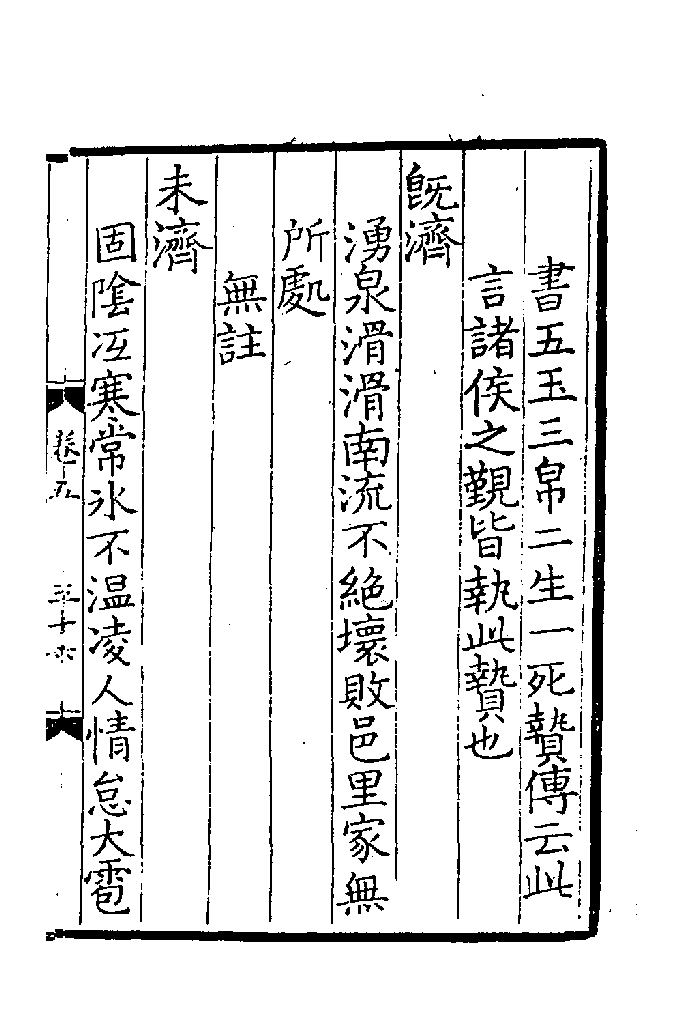 書五玉三帛二生一死贄傳云此
言諸侯之覲皆執此贄也
既濟
湧泉滑滑南流不絶壞敗邑里家無
所處
無註
未濟
固陰冱寒常氷不温凌人情怠大雹
卷十五
三十六